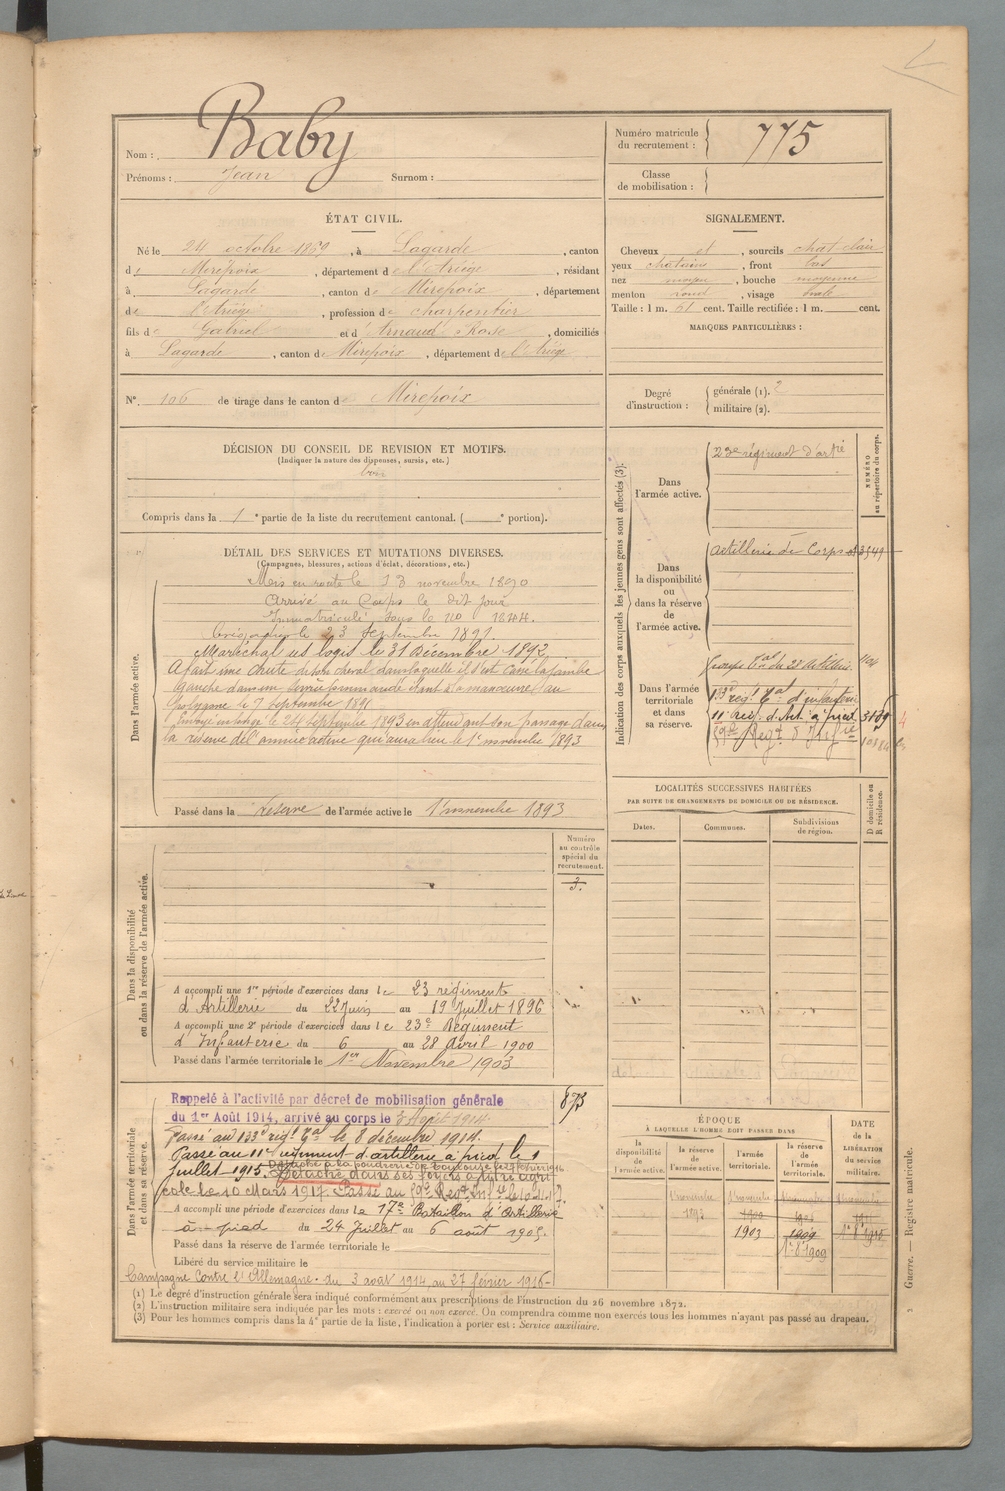 Nom : Baby
Prénoms : Jean Surnom :
Numéro matricule du recrutement : 775
Classe de mobilisation :
ÉTAT CIVIL.
Né le 24 octobre 1869, à Lagarde, canton
de Mirepoix, département de l'Ariège, résidant
à Lagarde, canton de Mirepoix, département
de l'Ariège, profession de charpentier
fils de Gabriel et d'Arnaud Rose, domiciliés
à Lagarde, canton de Mirepoix, département de l'Ariège
SIGNALEMENT.
Cheveux et, sourcils chat clair
yeux chatains, front bas
nez moyen, bouche moyenne
menton rond, visage ovale
Taille : 1 m. 61 cent. Taille rectifiée : 1 m. cent.
MARQUES PARTICULIÈRES :
N° 106 de tirage dans le canton de Mirepoix
Degré d'instruction : générale (1). 2
militaire (2).
DÉCISION DU CONSEIL DE REVISION ET MOTIFS.
(Indiquer la nature des dispenses, sursis, etc.)
bon
Compris dans la 1e partie de la liste du recrutement cantonal. ( e portion).
DÉTAIL DES SERVICES ET MUTATIONS DIVERSES.
(Campagnes, blessures, actions d'éclat, décorations, etc.)
Dans l'armée active.
Mis en route le 13 novembre 1890
Arrivé au Corps le dit jour
Immatriculé sous le no 1844.
Brigadier le 23 septembre 1891.
Maréchal des logis le 31 Décembre 1892
A fait une chute de son cheval dans laquelle il s'est cassé la jambe
gauche dans un service commandé étant à la manœuvre au
polygone le 7 septembre 1891
Envoyé en congé le 24 septembre 1893 en attendant son passage dans
la réserve de l'armée active qui aura lieu le 1er novembre 1893
Passé dans la réserve de l'armée active le 1er novembre 1893
Indication des corps auxquels les jeunes gens sont affectés (3).
NUMÉRO au répertoire du corps.
Dans l'armée active.
23e régiment d'artie
Dans la disponibilité ou dans la réserve de l'armée active.
artillerie de Corps
Dans l'armée territoriale et dans sa réserve.
groupe Tal du 28 Artillerie.
133e régt Tal d'infanterie
11e rég. d'Art. à pied 3189
59e Regt d'Infie
LOCALITÉS SUCCESSIVES HABITÉES
PAR SUITE DE CHANGEMENTS DE DOMICILE OU DE RÉSIDENCE.
Dates. Communes. Subdivisions de région.
D domicile ou R résidence.
Numéro au contrôle spécial du recrutement.
Dans la disponibilité ou dans la réserve de l'armée active.
A accompli une 1re période d'exercices dans le 23 régiment
d'Artillerie du 22 Juin au 19 Juillet 1896
A accompli une 2e période d'exercices dans le 23e Régiment
d'Infanterie du 6 au 28 Avril 1900
Passé dans l'armée territoriale le 1er Novembre 1903
Dans l'armée territoriale et dans sa réserve.
Rappelé à l'activité par décret de mobilisation générale
du 1er Août 1914, arrivé au corps le 3 Août 1914
873
Passé au 133e régt Tal le 8 décembre 1914.
Passé au 11e régiment d'artillerie à pied le 1
Juillet 1915. Détaché à la poudrerie de Toulouse
Détaché dans ses foyers
cole le 10 Mars 1917. Passé au
A accompli une période d'exercices dans le 17e Bataillon d'Artillerie
à pied du 24 Juillet au 6 août 1905.
Passé dans la réserve de l'armée territoriale le
Libéré du service militaire le
Campagne Contre l'Allemagne. du 3 août 1914 au 27 février 1916
ÉPOQUE
À LAQUELLE L'HOMME DOIT PASSER DANS
la disponibilité de l'armée active.
la réserve de l'armée active.
l'armée territoriale.
la réserve de l'armée territoriale.
DATE de la LIBÉRATION du service militaire.
1er novembre 1893
1900
1903
1909
1er 8e 1909
(1) Le degré d'instruction générale sera indiqué conformément aux prescriptions de l'instruction du 26 novembre 1872.
(2) L'instruction militaire sera indiquée par les mots : exercé ou non exercé. On comprendra comme non exercés tous les hommes n'ayant pas passé au drapeau.
(3) Pour les hommes compris dans la 4e partie de la liste, l'indication à porter est : Service auxiliaire.
Guerre. — Registre matricule.